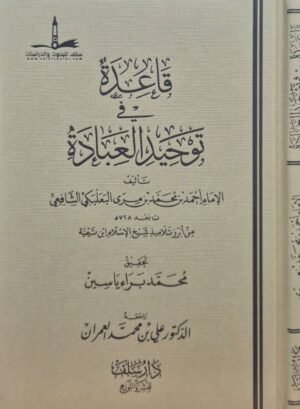 سلف للبحوث والدراسات
قاعدة
في
توحيد العبادة
تأليف
الإمام أحمد بن محمد بن مري البعلبكي الشافعي
ت بعد ٧٢٨ هـ
من أبرز تلاميذ شيخ الإسلام ابن تيمية
تحقيق
محمد براء ياسين
راجعه
الدكتور علي بن محمد العمران
دار سلف
للنشر والتوزيع